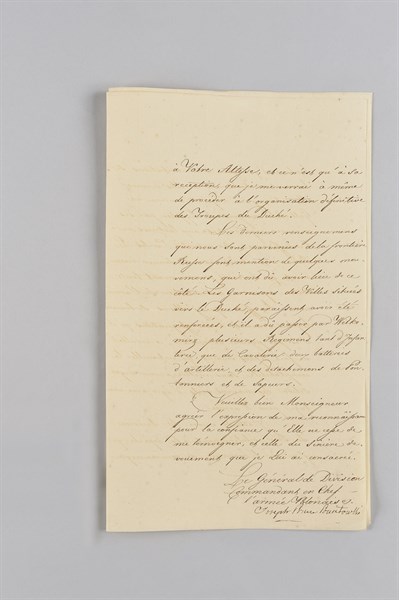 à Votre Altesse, et ce n'est qu'à sa
réception que je me verrai à même
de procéder à l'organisation définitive
des Troupes du Duché.
Les derniers renseignemens
que nous sont parvenus de la frontière
Russe font mention de quelques mou-
vemens, qui ont dû avoir lieu de ce
côté. Les Garnisons des Villes situées
vers le Duché, paraissent avoir été
renforcées, et il a dû passer par Wilko-
mirz plusieurs Regimens tant d'Infan-
terie que de Cavalerie, deux batteries
d'artillerie et des détachemens de Pon-
tonniers et de Sapeurs.
Veuillez bien Monseigneur
agréer l'expression de ma reconnaissance
pour la confiance qu'Elle ne cesse de
me témoigner, et celle du sincère dé-
vouement que je Lui ai consacré.
Le Général de Division
Commandant en Chef
armée Polonaise
Joseph Prince Poniatowski